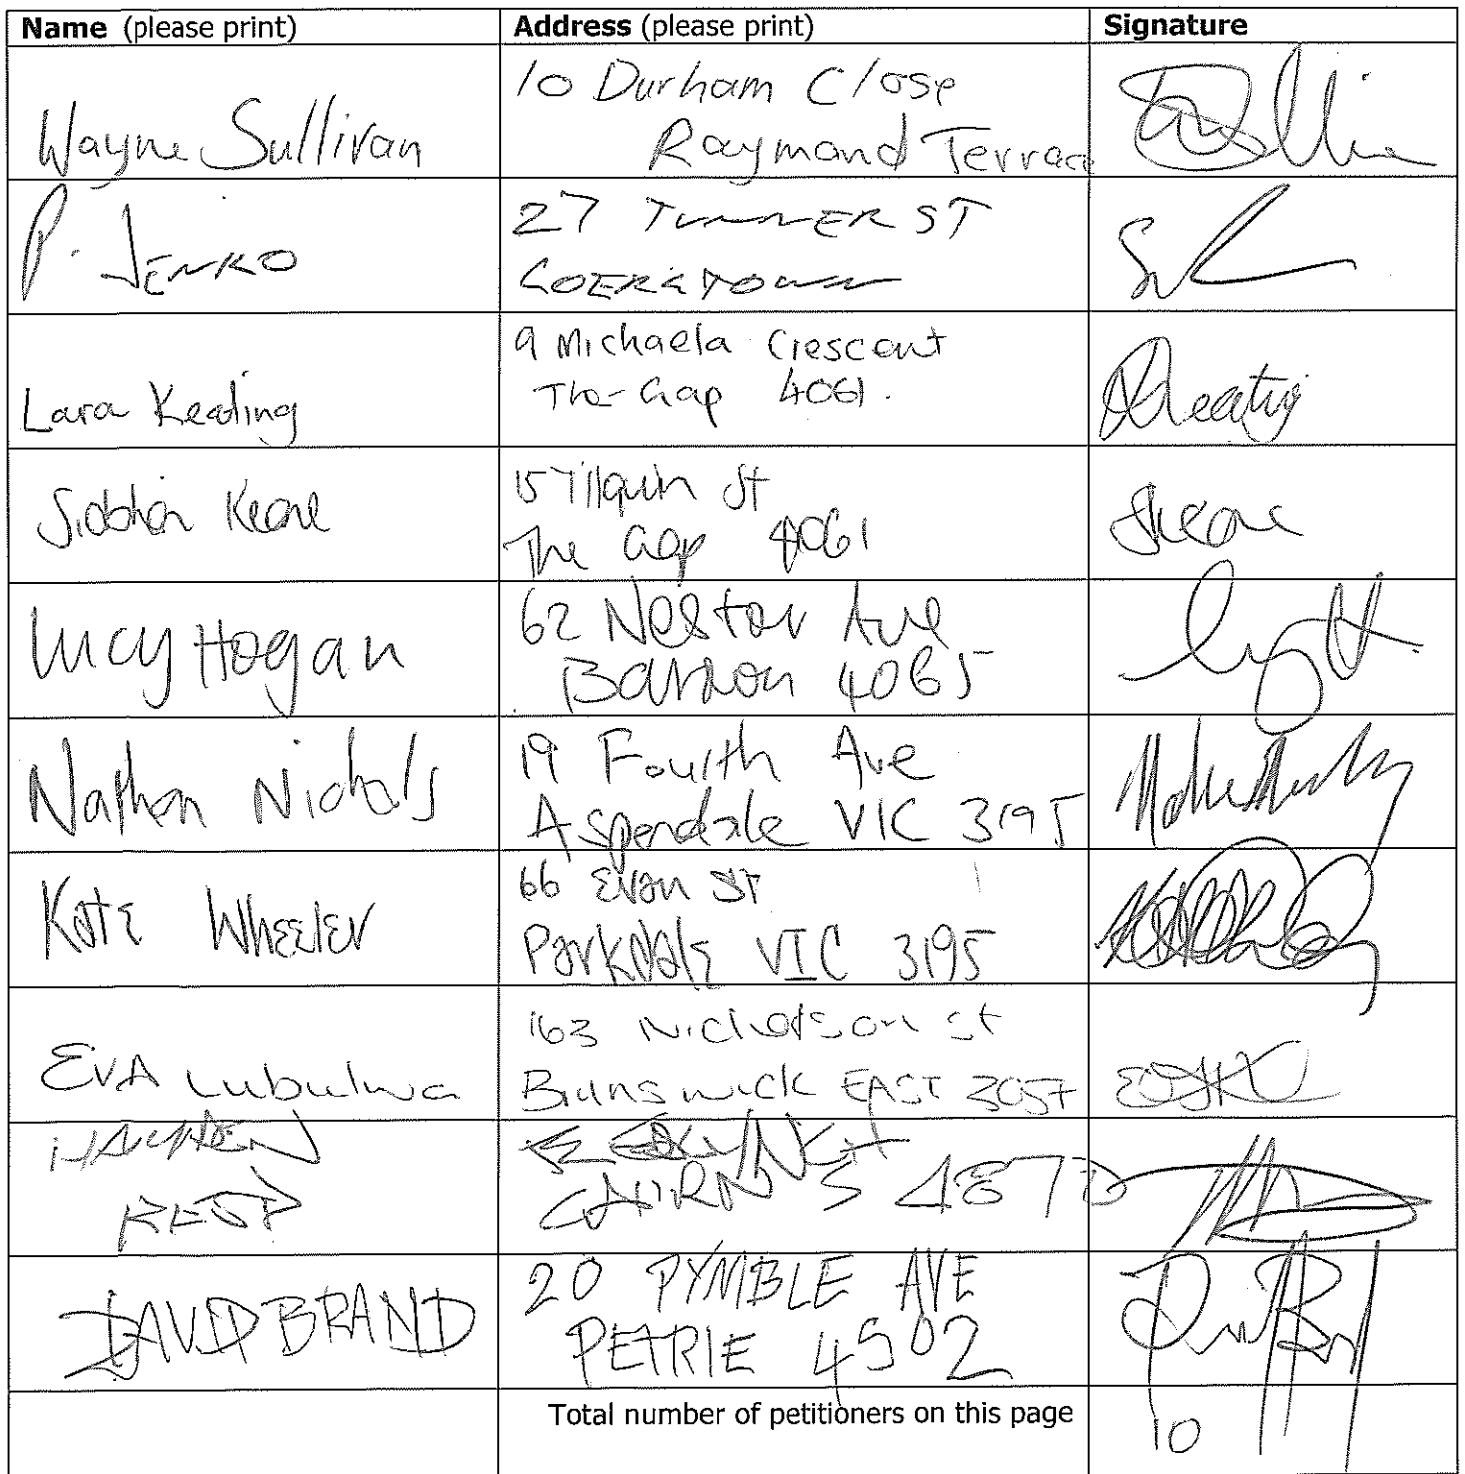 Name (please print) Address (please print) Signature
Wayne Sullivan
10 Durham Close
Raymond Terrace
P. JENKO
27 TURNER ST
Lara Keating
9 Michaela Crescent
The Gap 4061.
Siobhan Keane
15 Tilquin St
The Gap 4061
Lucy Hogan
62 Nestor Ave
Bardon 4065
Nathan Nichols
19 Fourth Ave
Aspendale VIC 3195
Kate Wheeler
66 Evan ST
Parkdale VIC 3195
EVA Lubulwa
163 Nicholson st
Brunswick EAST 3057
HAYDEN
CAIRNS 4870
DAVID BRAND
20 PYMBLE AVE
PETRIE 4502
Total number of petitioners on this page 10